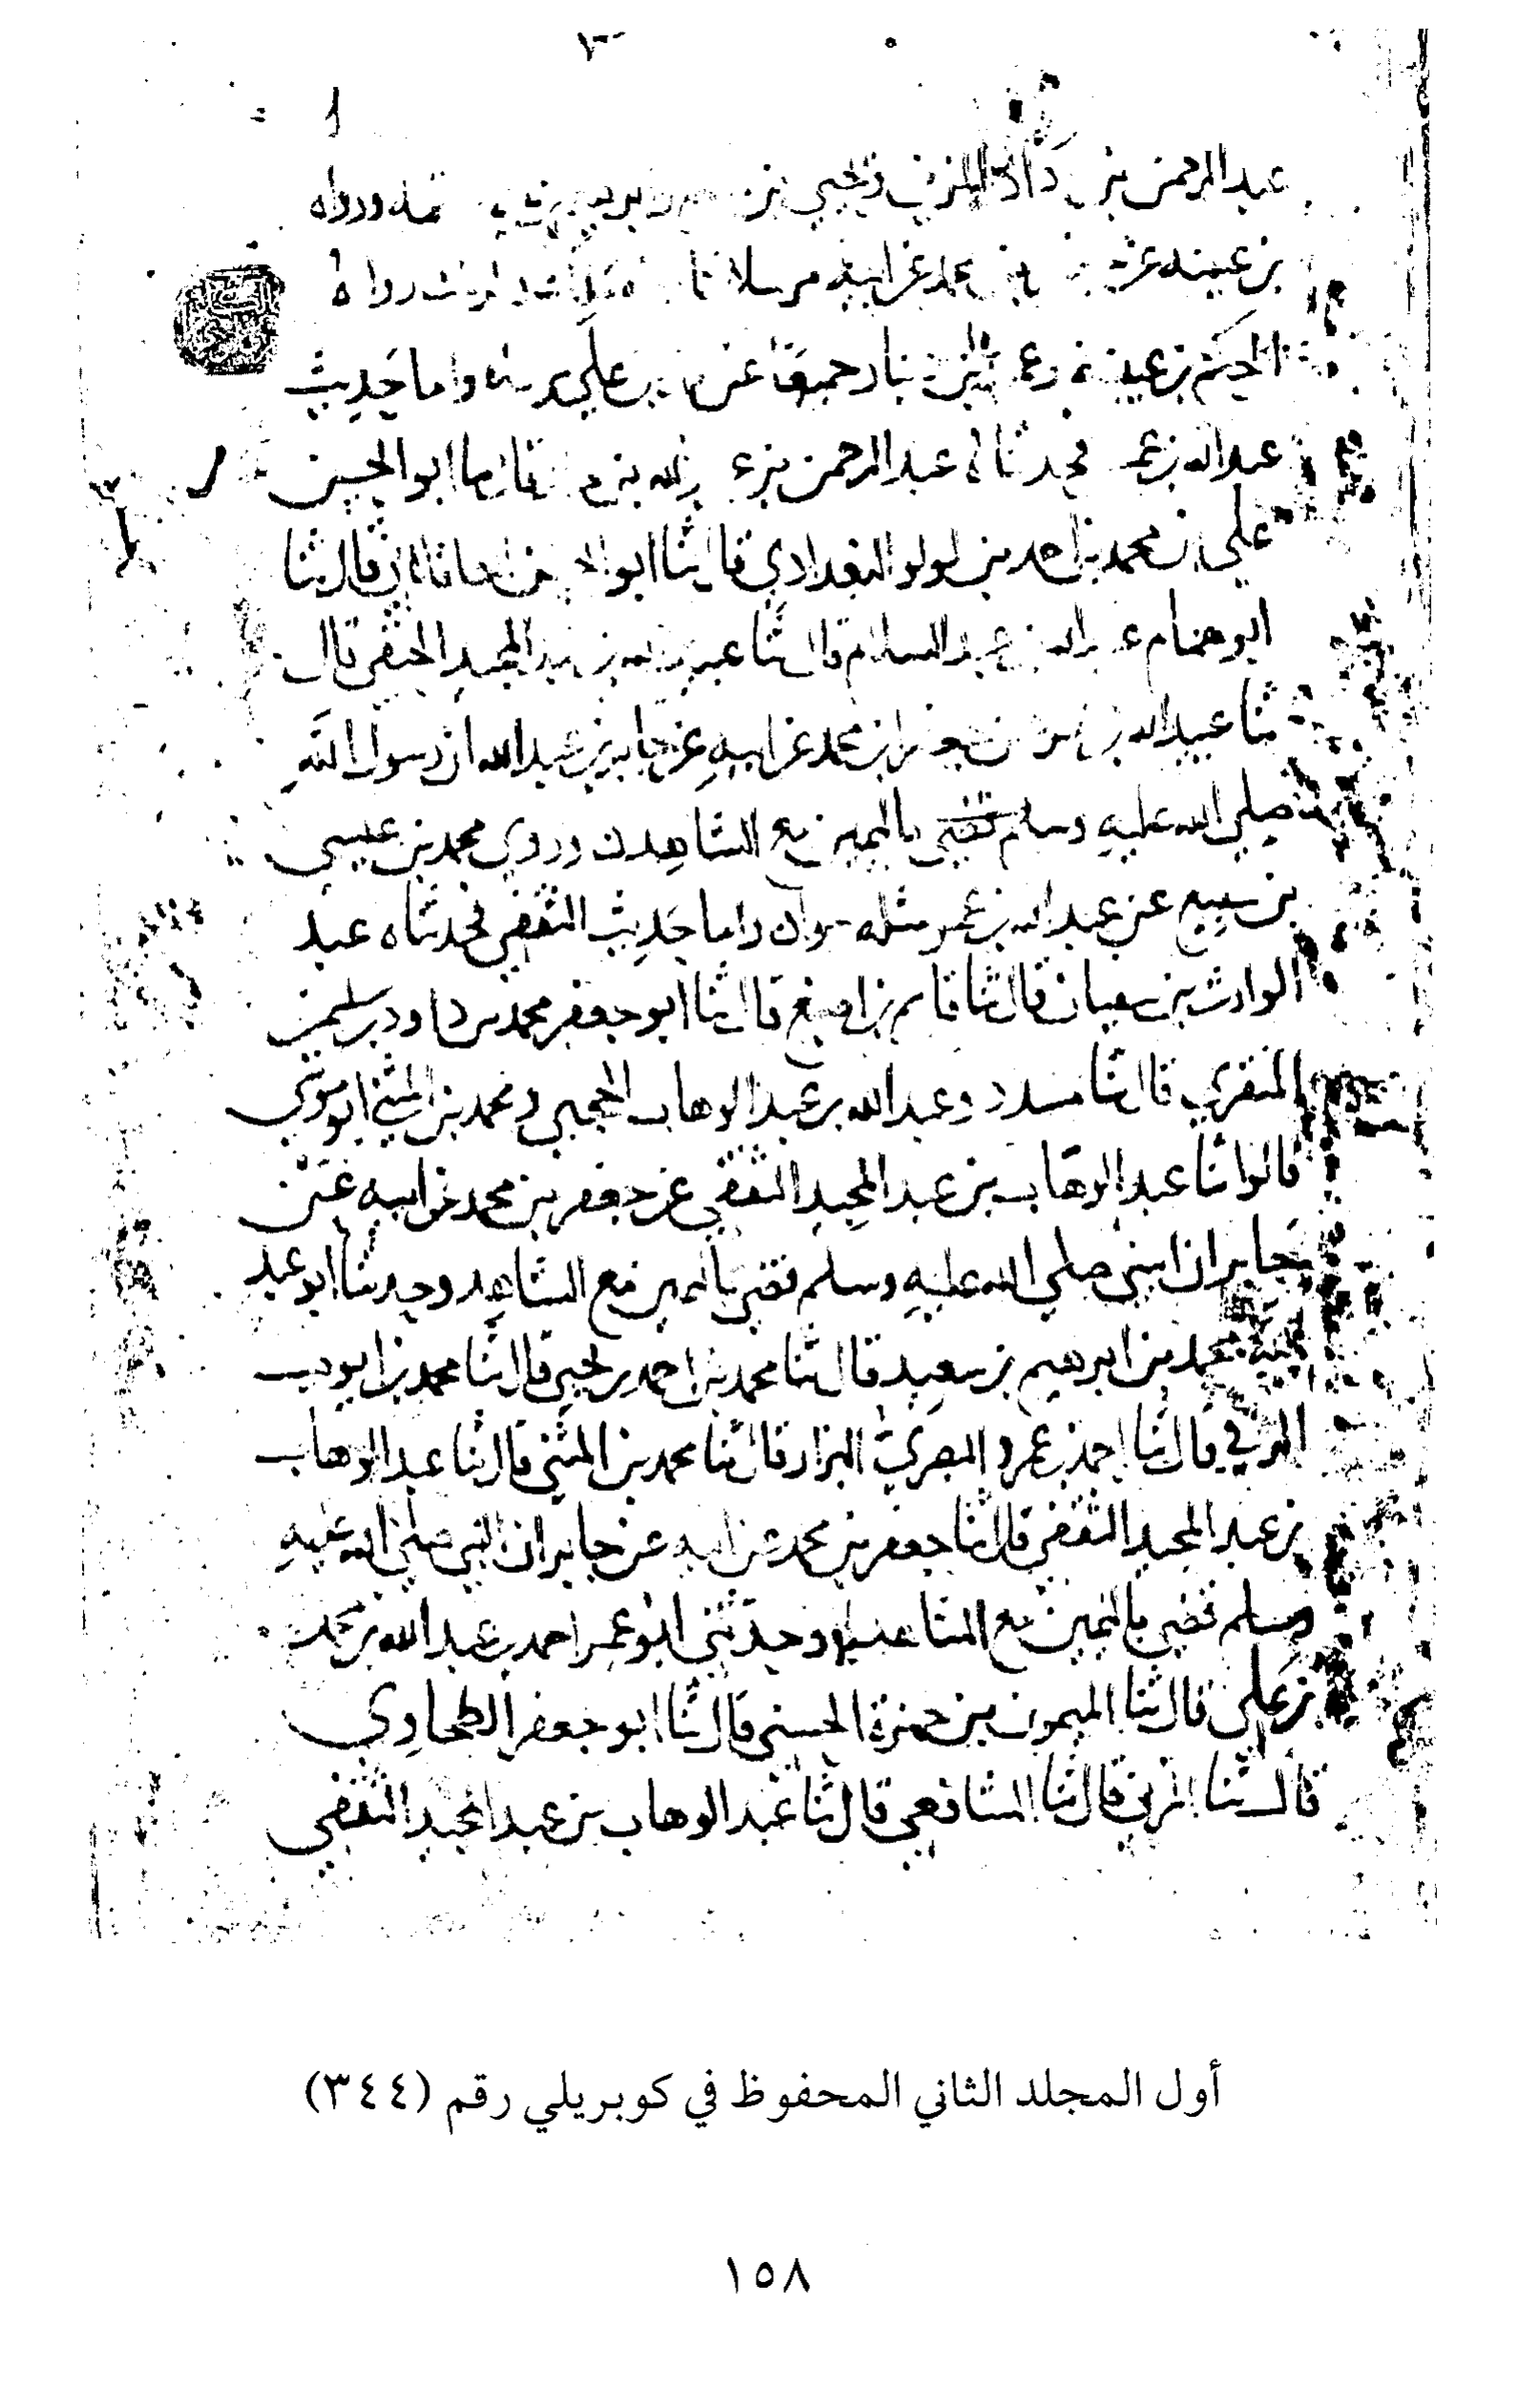 عبد الرحمن بن
بن عيينه عن محمد عن ابيه مرسلا
عن علي مرسلا واما حديث
عبد الله بن عمر فحدثناه عبد الرحمن بن ابو الحسن
علي بن محمد بن احمد بن لولو البغدادي قال ثنا ابو قال ثنا
ابو همام عبد السلام قال ثنا بن عبد المجيد الحنفي قال
ثنا عبيد الله بن عن جعفر بن محمد عن ابيه عن جابر بن عبد الله ان رسول الله
صلى الله عليه وسلم قضى باليمين مع الشاهد وروي محمد بن عيسى
بن سميع عن عبيد الله بن عمر مثله واما حديث الثقفي فحدثناه عبد
الوارث بن سفيان قال ثنا قاسم بن اصبغ قال ثنا ابو جعفر محمد بن داود بن سليمن
المنقري قال ثنا مسدد وعبد الله بن عبد الوهاب الحجبي ومحمد بن المثنى ابو موسى
قالوا ثنا عبد الوهاب بن عبد المجيد الثقفي عن جعفر بن محمد عن ابيه عن
جابر ان النبي صلى الله عليه وسلم قضى باليمين مع الشاهد وحدثنا ابو عبد
محمد بن ابرهيم بن سعيد قال ثنا محمد بن احمد بن يحيى قال ثنا محمد بن ايوب
الرقي قال ثنا احمد بن عمرو البصري البزار قال ثنا محمد بن المثنى قال ثنا عبد الوهاب
بن عبد المجيد الثقفي قال ثنا جعفر بن محمد عن ابيه عن جابر ان النبي صلى الله عليه
وسلم قضى باليمين مع الشاهد وحدثني ابو عمر احمد بن عبد الله بن محمد
بن علي قال ثنا الميمون بن حمزة الحسني قال ثنا ابو جعفر الطحاوي
قال ثنا المزني قال ثنا الشافعي قال ثنا عبد الوهاب بن عبد المجيد الثقفي
أول المجلد الثاني المحفوظ في كوبريلي رقم (٣٤٤)
١٥٨